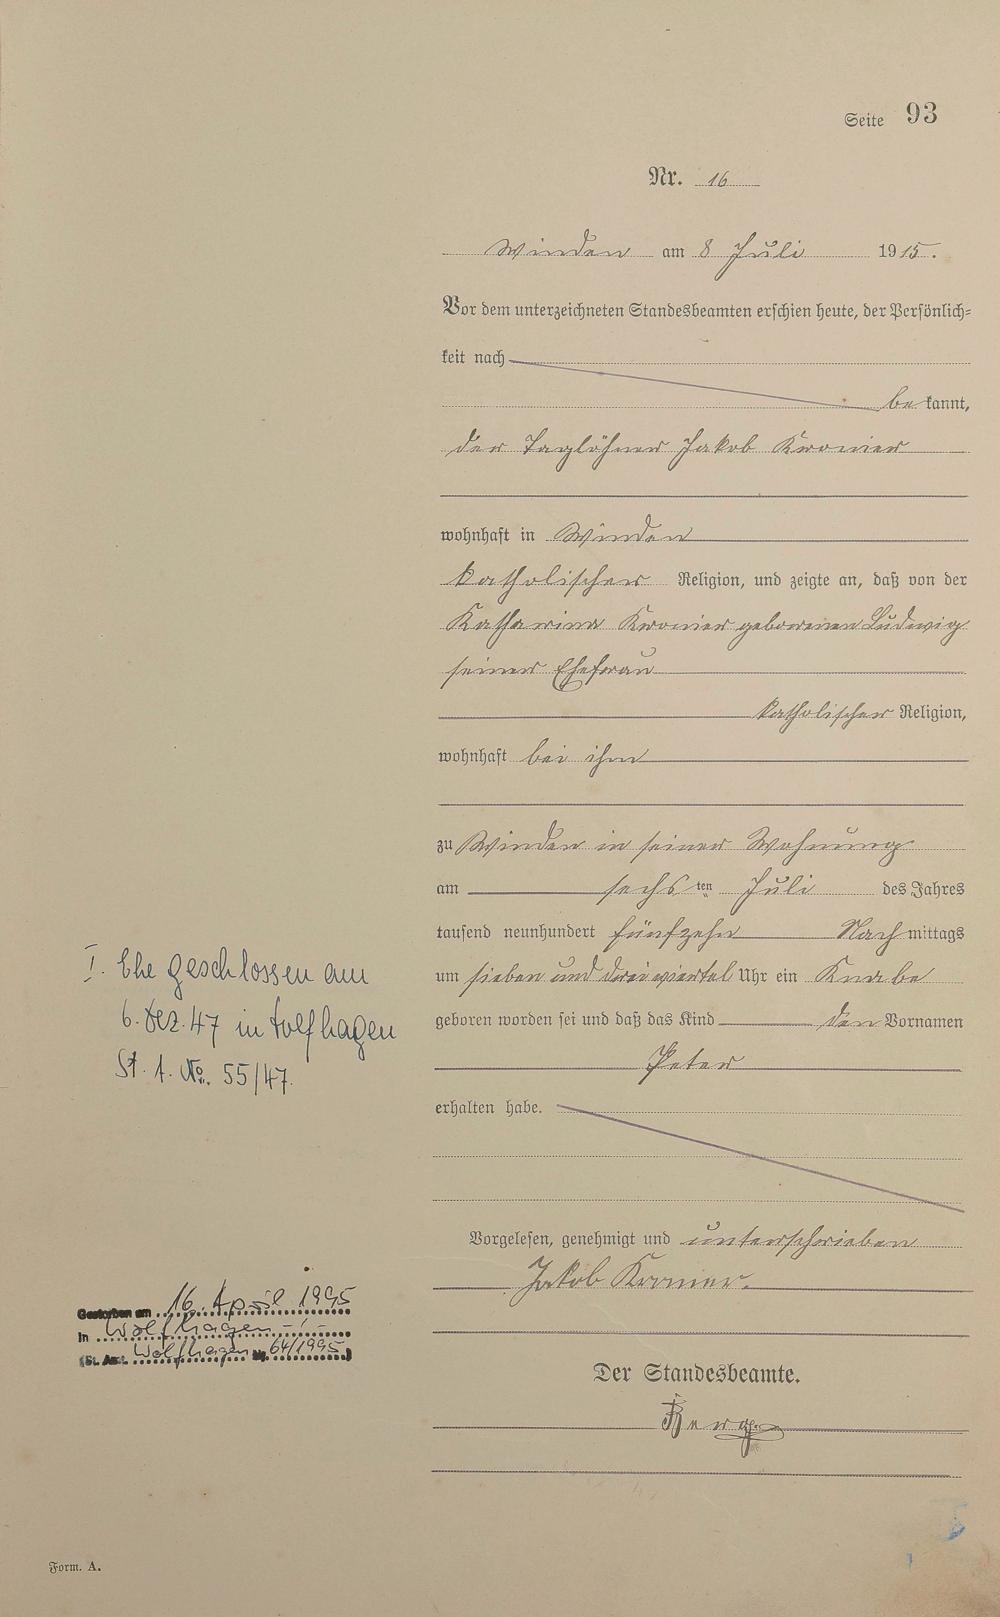 Seite 93
Nr. 16
Winden am 8 Juli 1915.
Vor dem unterzeichneten Standesbeamten erschien heute, der Persönlich=
keit nach
bekannt,
der Taglöhner Jakob Kronier
wohnhaft in Winden
katholischer Religion, und zeigte an, daß von der
Katharina Kronier geborenen Ludwig
seiner Ehefrau
katholischer Religion,
wohnhaft bei ihm
zu Winden in seiner Wohnung
am sechsten Juli des Jahres
tausend neunhundert fünfzehn Nachmittags
um sieben und dreiviertel Uhr ein Knabe
geboren worden sei und daß das Kind den Vornamen
Peter
erhalten habe.
I. Ehe geschlossen am
6. Dez. 47 in Wolfhagen
St. A. No. 55/47.
Vorgelesen, genehmigt und unterschrieben
Jakob Kronier.
Gestorben am 16. April 1995
in Wolfhagen -/-
(St. Amt. Wolfhagen Nr. 64/1995)
Der Standesbeamte.
Berg
Form. A.